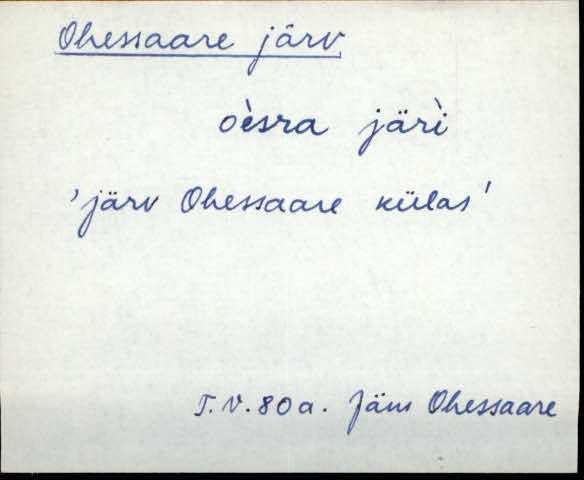 Ohessaare järv
oèsra järì
'järv Ohessaare külas'
T.V. 80a. Jäm Ohessaare